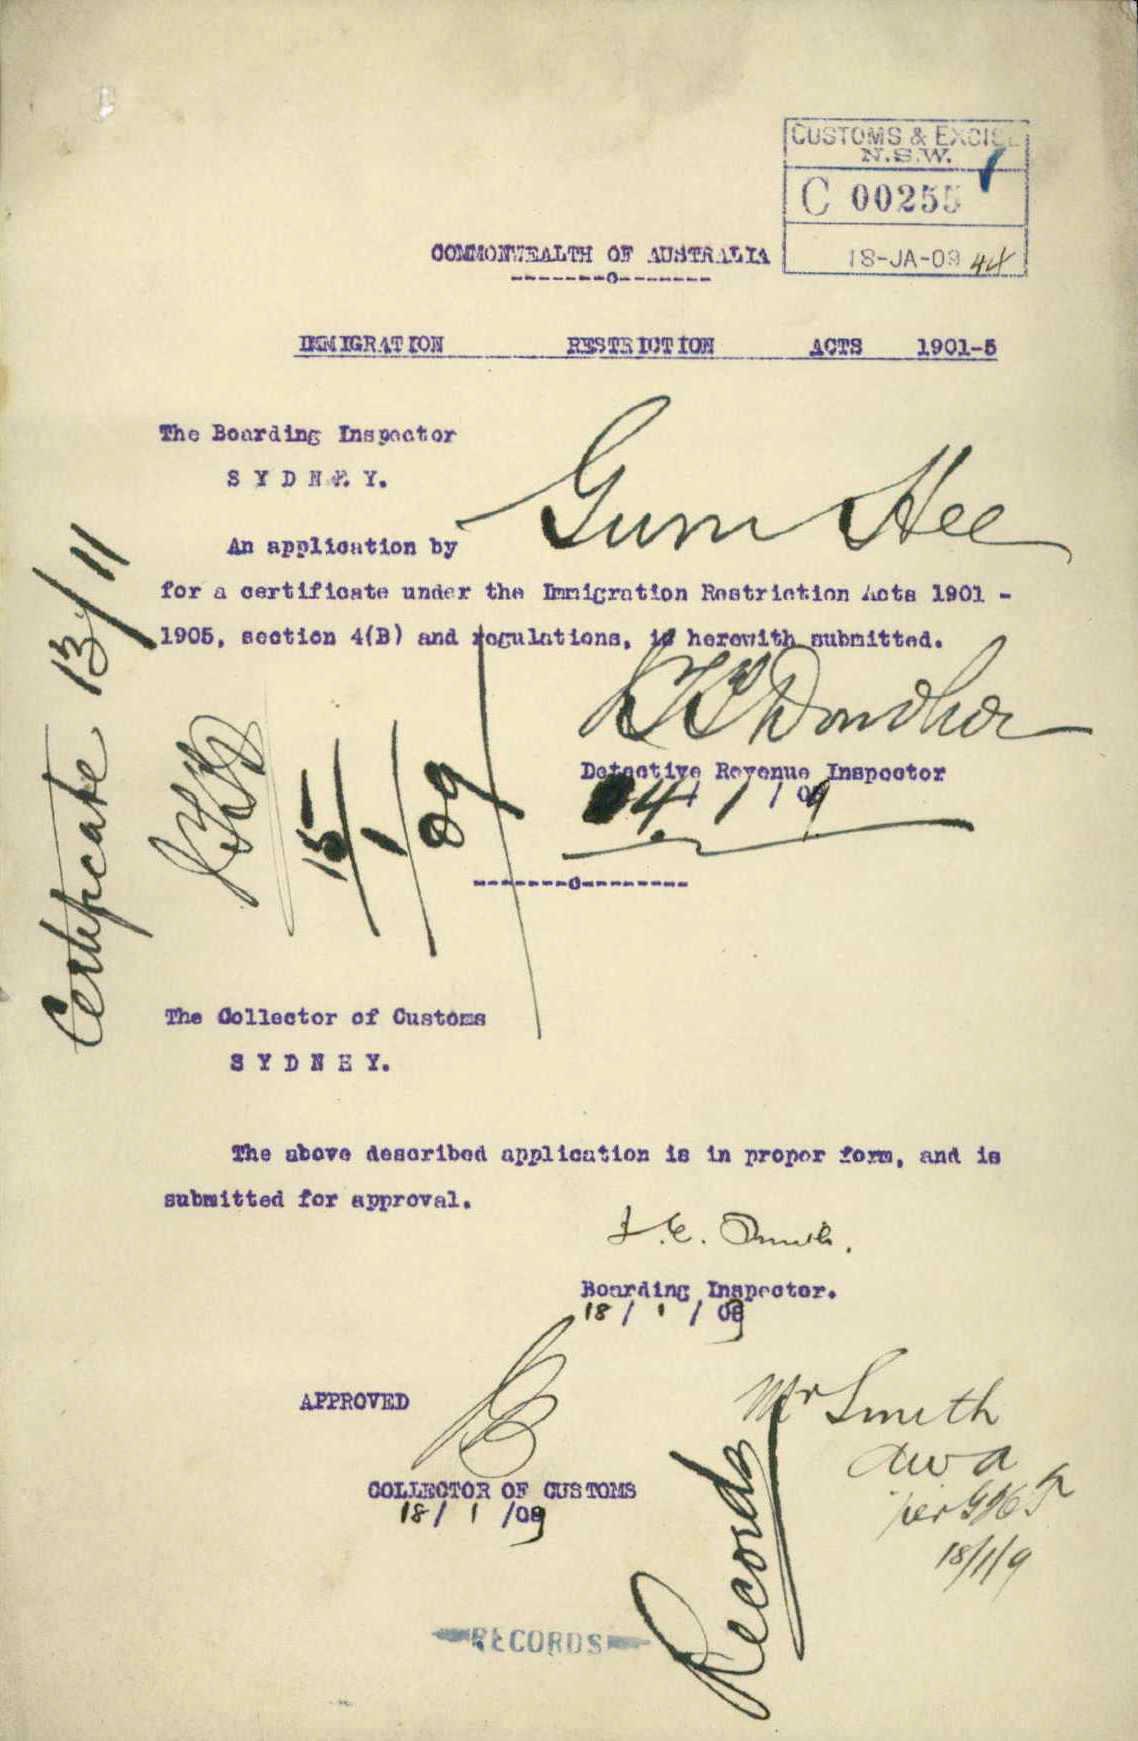 CUSTOMS & EXCISE
N.S.W.
C 00255
18-JA-09 44
COMMONWEALTH OF AUSTRALIA
-------o-------
IMMIGRATION RESTRICTION ACTS 1901-5
The Boarding Inspector
SYDNEY.
An application by Gum Hee
for a certificate under the Immigration Restriction Acts 1901 -
1905, section 4(B) and regulations, is herewith submitted.
Donohoe
Detective Revenue Inspector
14/1/09
--------o---------
Certificate 13/11
15/1/09
The Collector of Customs
SYDNEY.
The above described application is in proper form, and is
submitted for approval.
J.E. Smith.
Boarding Inspector.
18/1/09
APPROVED
COLLECTOR OF CUSTOMS
18/1/09
Mr Smith
18/1/9
Records
RECORDS